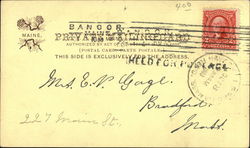 400
BANGOR
MAINE.
PRIVATE MAILING CARD
AUTHORIZED BY ACT OF
(POSTAL CARD-CARTE POSTALE)
THIS SIDE IS EXCLUSIVELY FOR THE ADDRESS.
HELD FOR POSTAGE
Mrs. E. P. Gage.
Bradford
Mass.
227 Main St.